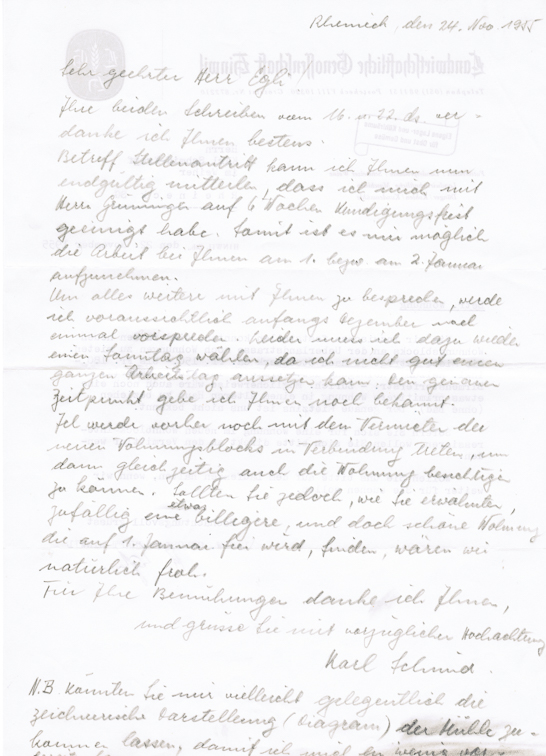 Rheineck, den 24. Nov. 1955
Sehr geehrter Herr Egli!
Ihre beiden Schreiben vom 16. u. 22. ds. ver-
danke ich Ihnen bestens.
Betreff Stellenantritt kann ich Ihnen nun
endgültig mitteilen, dass ich mich mit
Herr Grüninger auf 6 Wochen Kündigungsfrist
geeinigt habe. Somit ist es mir möglich
die Arbeit bei Ihnen am 1. bezw. am 2. Januar
aufzunehmen.
Um alles weitere mit Ihnen zu besprechen, werde
ich voraussichtlich anfangs Dezember noch
einmal vorsprechen. Leider muss ich dazu wieder
einen Samstag wählen, da ich nicht gut einen
ganzen Arbeitstag aussetzen kann. Den genauen
Zeitpunkt gebe ich Ihnen noch bekannt.
Ich werde vorher noch mit dem Vermieter des
neuen Wohnungsblocks in Verbindung treten, um
dann gleichzeitig auch die Wohnung besichtigen
zu können. Sollten Sie jedoch, wie Sie erwähnten,
zufällig eine etwas billigere, und doch schöne Wohnung
die auf 1. Januar frei wird, finden, wären wir
natürlich froh.
Für Ihre Bemühungen danke ich Ihnen,
und grüsse Sie mit vorzüglicher Hochachtung
Karl Schmid.
N.B. könnten Sie mir vielleicht gelegentlich die
zeichnerische Darstellung (Diagram) der Mühle zu-
kommen lassen, damit ich mich ein wenig